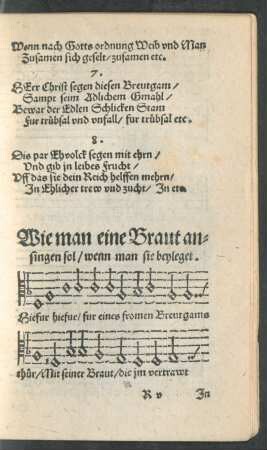 Wenn nach Gotts ordnung Weib vnd Man
Zusamen sich geselt/zusamen etc.
7.
HErr Christ segen diesen Breutgam/
Sampt seim Adlichem Gmahl/
Bewar der Edlen Schlicken Stam
Fur trübsal vnd vnfall/ fur trübsal etc.
8.
Dis par Ehvolck segen mit ehrn/
Vnd gib jn leibes Frucht/
Vff das sie dein Reich helffen mehrn/
In Ehlicher trew vnd zucht/ In etc.
Wie man eine Braut an-
singen sol/wenn man sie beyleget.
Hiefur hiefur/fur eines fromen Breutgams
thür/Mit seiner Braut/die jm vertrawt
R v In